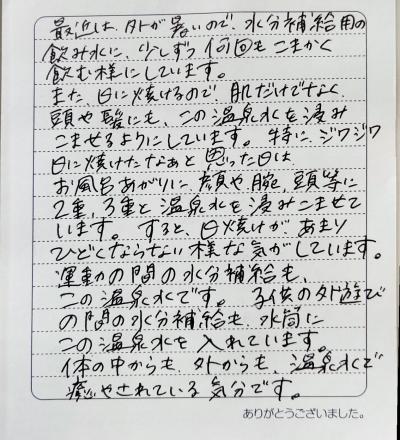 最近は、外が暑いので、水分補給用の
飲み水に、少しずつ何回もこまかく
飲む様にしています。
また、日に焼けるので肌だけでなく
頭や髪にも、この温泉水を浸み
こませるようにしています。特に、ジワジワ
日に焼けたなぁと思った日は
お風呂あがりに顔や腕、頭等に
2重、3重と温泉水を浸みこませて
います。すると、日焼けが、あまり
ひどくならない様な気がしています。
運動の間の水分補給も、
この温泉水です。子供の外遊び
の間の水分補給も、水筒に
この温泉水を入れています。
体の中からも、外からも、温泉水で
癒やされている気分です。
ありがとうございました。